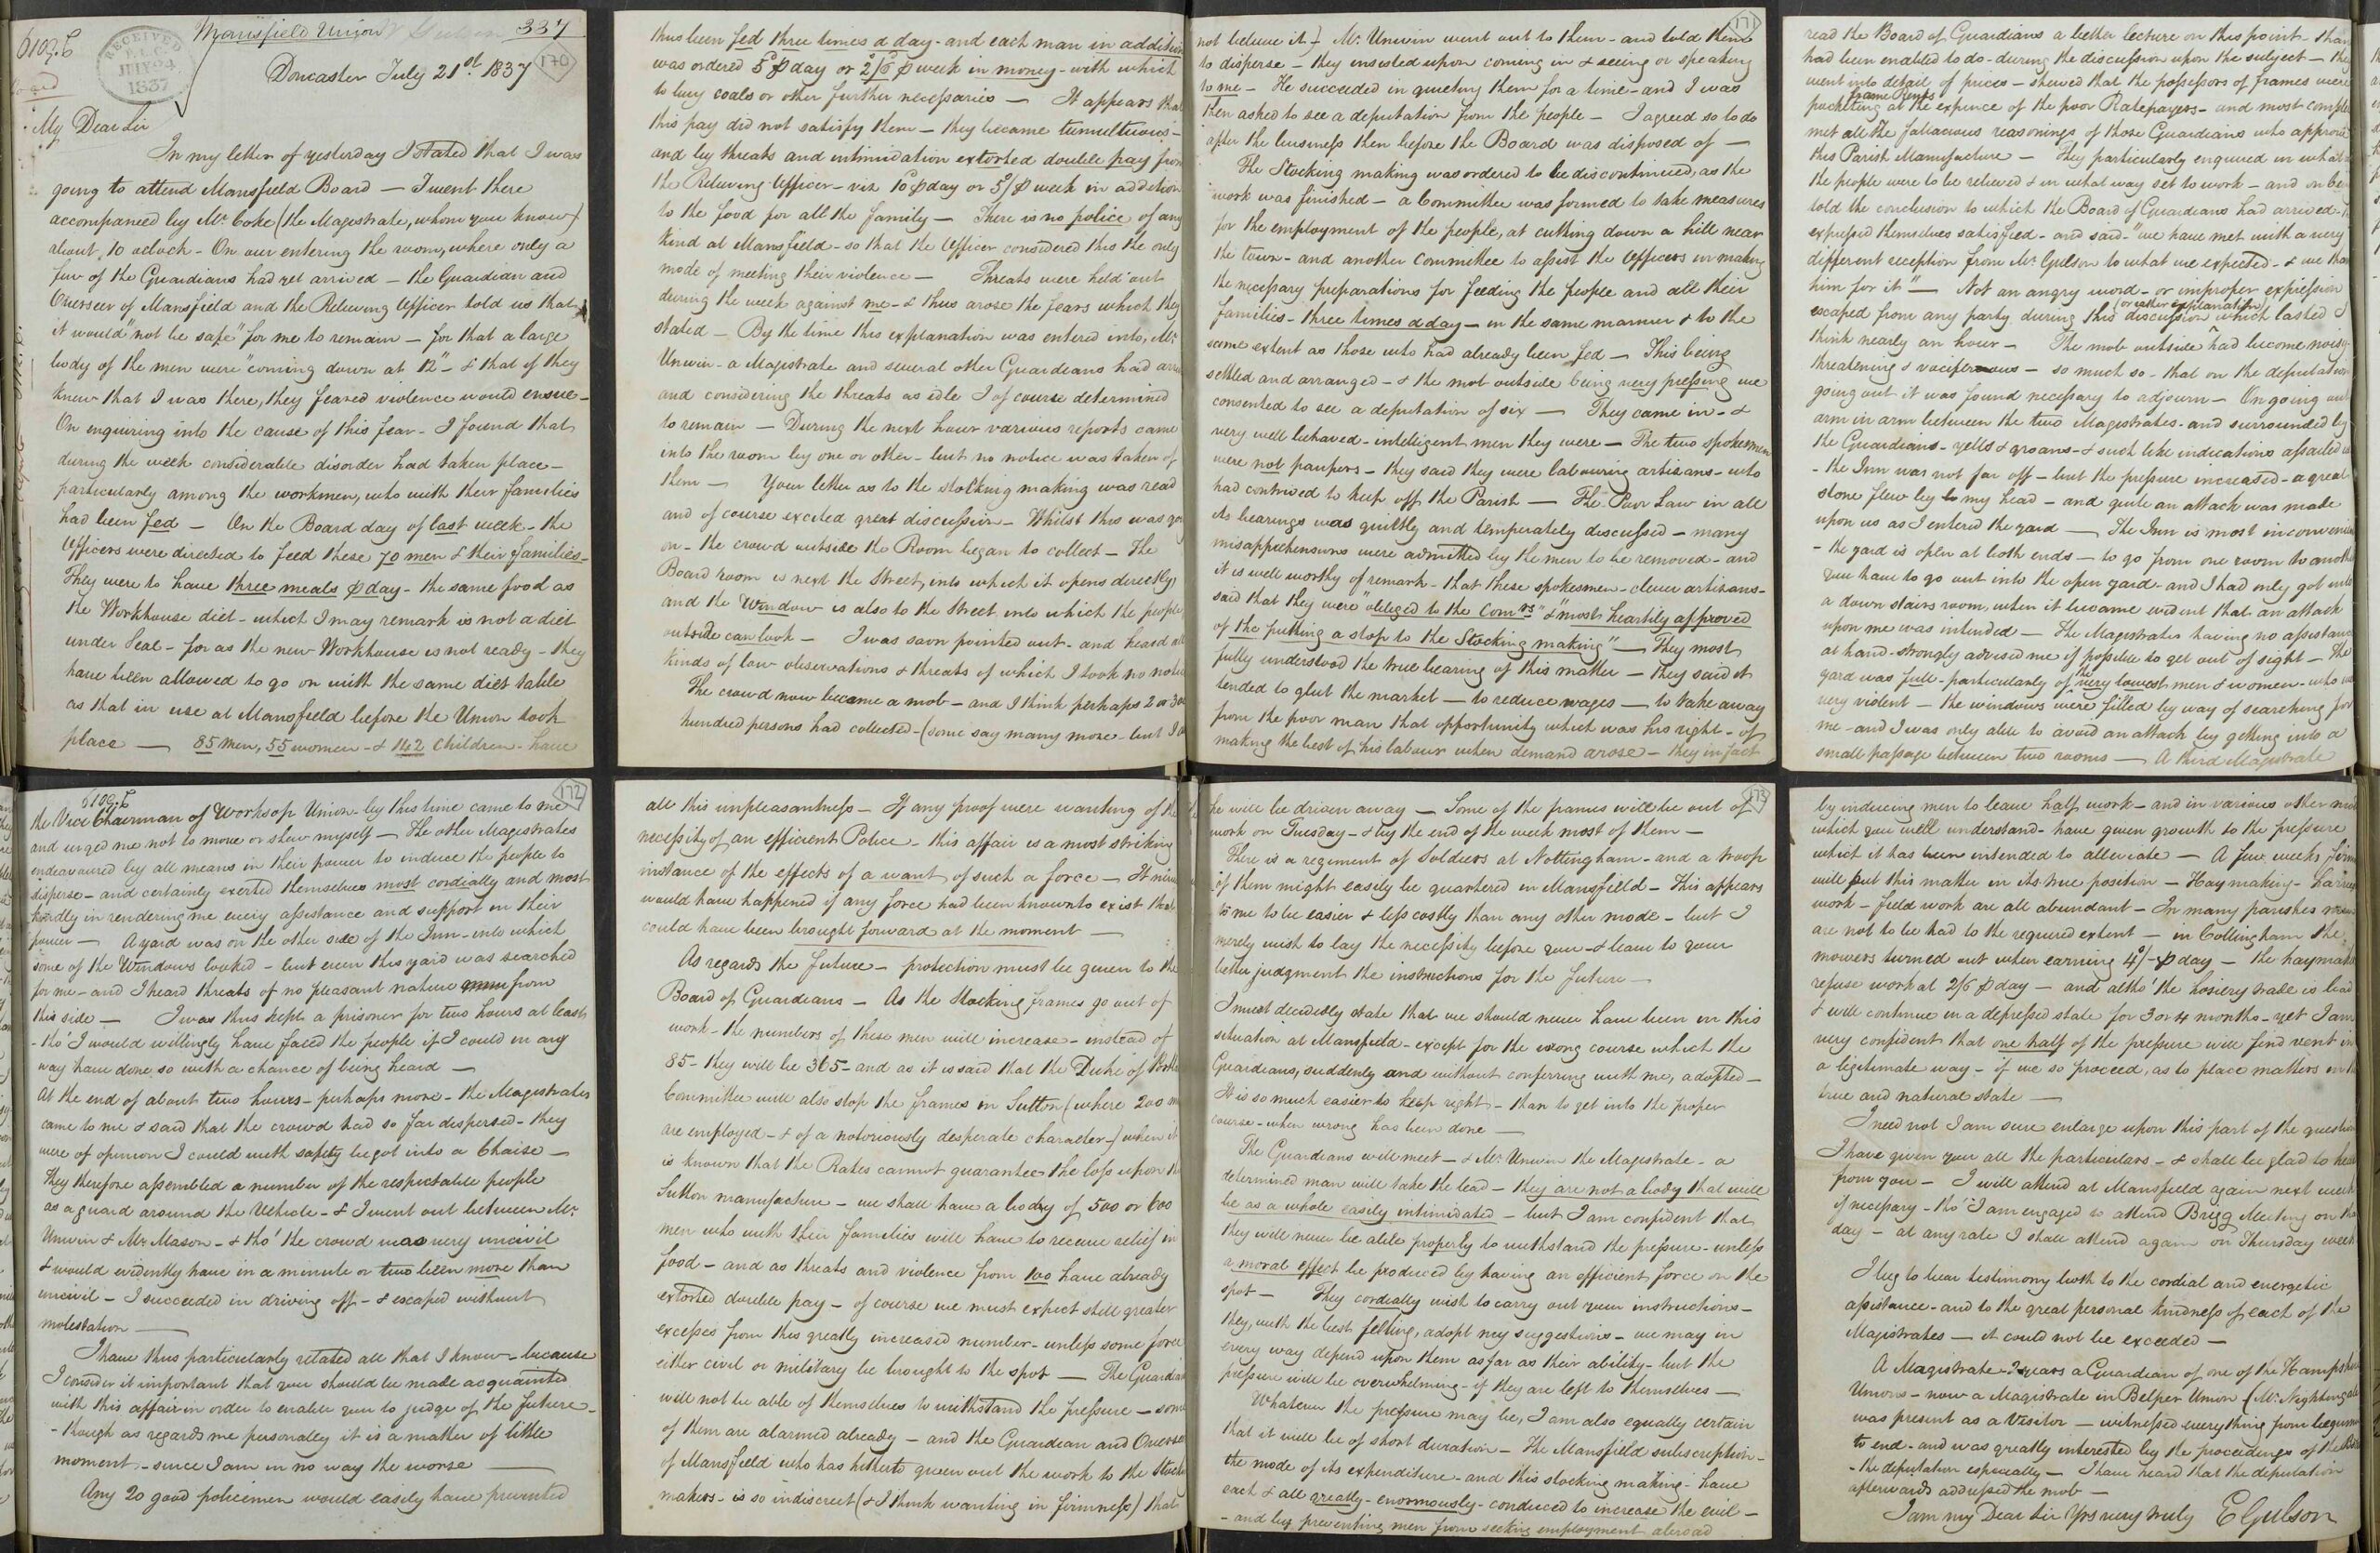 Mansfield Union
337
6109.C
RECEIVED
P.L.C.
JULY 24
1837
170
Doncaster July 21st 1837
My Dear Sir
In my letter of yesterday I stated that I was
going to attend Mansfield Board — I went there
accompanied by Mr. Coke (the Magistrate, whom you know)
about 10 oclock - On our entering the room, where only a
few of the Guardians had yet arrived — the Guardian and
Overseer of Mansfield and the Relieving Officer told us that
it would "not be safe" for me to remain — for that a large
body of the men were "coming down at 12" - & that if they
knew that I was there, they feared violence would ensue -
On enquiring into the cause of this fear - I found that
during the week considerable disorder had taken place —
particularly among the workmen, who with their families
had been fed — On the Board day of last week - the
Officers were directed to feed these 70 men & their families -
They were to have three meals ⅌ day - the same food as
the Workhouse diet - which I may remark is not a diet
under Seal - for as the new Workhouse is not ready - they
have been allowed to go on with the same diet table
as that in use at Mansfield before the Union took
place — 85 men, 55 women - & 142 Children - have
thus been fed three times a day - and each man in addition
was ordered 5d ⅌ day or 2/6 ⅌ week in money - with which
to buy coals or other further necessaries — It appears that
this pay did not satisfy them — they became tumultuous -
and by threats and intimidation extorted double pay from
the Relieving Officer - viz 10d ⅌ day or 5/ ⅌ week in addition
to the food for all the family — There is no police of any
kind at Mansfield - so that the Officer considered this the only
mode of meeting their violence — Threats were held out
during the week against me - & thus arose the fears which they
stated — By the time this explanation was entered into, Mr.
Unwin - a Magistrate and several other Guardians had
and considering the threats as idle I of course determined
to remain — During the next hour various reports came
into the room by one or other - but no notice was taken of
them — Your letter as to the stocking making was read
and of course excited great discussion - Whilst this was
on - the crowd outside the Room began to collect — The
Board room is next the Street, into which it opens directly
and the Window is also to the Street into which the people
outside can look — I was soon pointed out - and heard all
kinds of low observations & threats of which I took no notice
The crowd now became a mob - and I think perhaps 2 or 300
hundred persons had collected - (some say many more but I do
171
not believe it) Mr. Unwin went out to them - and told them
to disperse — they insisted upon coming in & seeing or speaking
to me - He succeeded in quieting them for a time - and I was
then asked to see a deputation from the people — I agreed so to do
after the business then before the Board was disposed of —
The Stocking making was ordered to be discontinued, as the
work was finished — a Committee was formed to take measures
for the employment of the people, at cutting down a hill near
the town - and another Committee to assist the Officers in making
the necessary preparations for feeding the people and all their
families - three times a day — in the same manner & to the
same extent as those who had already been fed — This being
settled and arranged - & the mob outside being very pressing we
consented to see a deputation of six — They came in - &
very well behaved - intelligent men they were — The two spokesmen
were not paupers - they said they were labouring artisans - who
had contrived to keep off the Parish — The Poor Law in all
its bearings was quietly and temperately discussed — many
misapprehensions were admitted by the men to be removed - and
it is well worthy of remark - that these spokesmen - clever artisans -
said that they were "obliged to the Comrs" & "most heartily approved
of the putting a stop to the Stocking making" — They most
fully understood the true bearing of this matter — they said it
tended to glut the market — to reduce wages — to take away
from the poor man that opportunity which was his right - of
making the best of his labour when demand arose — they in fact
read the Board of Guardians a better lecture on this point - than
had been enabled to do - during the discussion upon the subject — they
went into detail of prices — shewed that the possessors of frames were
pocketting frame Rents at the expence of the poor Ratepayers - and most
met all the fallacious reasonings of those Guardians who approve
this Parish Manufacture — They particularly enquired in what
the people were to be relieved & in what way set to work — and on
told the conclusion to which the Board of Guardians had arrived -
expressed themselves satisfied - and said - "we have met with a very
different reception from Mr. Gulson to what we expected - & we
him for it" — Not an angry word - or improper expression
escaped from any party during this discussion (or rather explanation) which lasted I
think nearly an hour — The mob outside had become noisy
threatening & vociferous — so much so - that on the deputation
going out it was found necessary to adjourn — On going out
arm in arm between the two Magistrates - and surrounded by
the Guardians - yells & groans - & such like indications assailed us
- the Inn was not far off — but the pressure increased - a great
stone flew by my head — and quite an attack was made
upon us as I entered the yard — The Inn is most inconvenient
- the yard is open at both ends — to go from one room to another
you have to go out into the open yard - and I had only got into
a down stairs room, when it became evident that an attack
upon me was intended — The Magistrates having no assistance
at hand - strongly advised me if possible to get out of sight — The
yard was full - particularly of the very lowest men & women - who
very violent — the windows were filled by way of searching for
me - and I was only able to avoid an attack by getting into a
small passage between two rooms — A third Magistrate
6109.C
172
the Vice Chairman of Worksop Union - by this time came to me
and urged me not to move or shew myself — The other Magistrates
endeavoured by all means in their power to induce the people to
disperse - and certainly exerted themselves most cordially and most
kindly in rendering me every assistance and support in their
power — A yard was on the other side of the Inn - into which
some of the Windows looked - but even this yard was searched
for me - and I heard threats of no pleasant nature from
this side — I was thus kept a prisoner for two hours at least
- tho' I would willingly have faced the people if I could in any
way have done so with a chance of being heard —
At the end of about two hours - perhaps more - the Magistrates
came to me & said that the crowd had so far dispersed - they
were of opinion I could with safety be got into a Chaise —
They therefore assembled a number of the respectable people
as a guard around the Vehicle - & I went out between Mr.
Unwin & Mr. Mason - & tho' the crowd was very uncivil
& would evidently have in a minute or two been more than
uncivil — I succeeded in driving off - & escaped without
molestation —
I have thus particularly related all that I know - because
I consider it important that you should be made acquainted
with this affair in order to enable you to judge of the future -
- though as regards me personally it is a matter of little
moment - since I am in no way the worse —
Any 20 good policemen would easily have prevented
all this unpleasantness — If any proof were wanting of the
necessity of an efficient Police - this affair is a most striking
instance of the effects of a want of such a force — It
would have happened if any force had been known to exist that
could have been brought forward at the moment —
As regards the future — protection must be given to the
Board of Guardians — As the Stocking frames go out of
work - the numbers of these men will increase - instead of
85 - they will be 365 - and as it is said that the Duke of
Committee will also stop the frames in Sutton (where 200
are employed - & of a notoriously desperate character) when it
is known that the Rates cannot guarantee the loss upon the
Sutton manufacture — we shall have a body of 500 or 600
men who with their families will have to receive relief in
food — and as threats and violence from 100 have already
extorted double pay — of course we must expect still greater
excesses from this greatly increased number - unless some force
either civil or military be brought to the spot — The Guardians
will not be able of themselves to withstand the pressure — some
of them are alarmed already — and the Guardian and Overseer
of Mansfield who has hitherto given out the work to the
makers - is so indiscreet (& I think wanting in firmness) that
173
he will be driven away — Some of the frames will be out of
work on Tuesday - & by the end of the week most of them —
There is a regiment of Soldiers at Nottingham - and a troop
of them might easily be quartered in Mansfield — This appears
to me to be easier & less costly than any other mode - but I
merely wish to lay the necessity before you - & leave to your
better judgment the instructions for the future —
I must decidedly state that we should never have been in this
situation at Mansfield - except for the wrong course which the
Guardians, suddenly and without conferring with me, adopted —
It is so much easier to keep right - than to get into the proper
course - when wrong has been done —
The Guardians will meet — & Mr. Unwin the Magistrate - a
determined man will take the lead — they are not a body that will
be as a whole easily intimidated — but I am confident that
they will never be able properly to withstand the pressure - unless
a moral effect be produced by having an efficient force on the
spot — They cordially wish to carry out your instructions —
they, with the best feeling, adopt my suggestions — we may in
every way depend upon them as far as their ability - but the
pressure will be overwhelming - if they are left to themselves —
Whatever the pressure may be, I am also equally certain
that it will be of short duration — The Mansfield subscription -
the mode of its expenditure - and this stocking making - have
each & all greatly - enormously - conduced to increase the evil —
- and by preventing men from seeking employment abroad
by inducing men to leave half work - and in various other
which you will understand - have given growth to the pressure
which it has been intended to alleviate — A few weeks
will put this matter in its true position — Hay making - harvest
work - field work are all abundant — In many parishes
are not to be had to the required extent — in Collingham the
mowers turned out when earning 4/- ⅌ day — the haymakers
refuse work at 2/6 ⅌ day — and altho' the hosiery trade is bad
& will continue in a depressed state for 3 or 4 months - yet I am
very confident that one half of the pressure will find vent in
a legitimate way - if we so proceed, as to place matters in
true and natural state —
I need not I am sure enlarge upon this part of the question
I have given you all the particulars - & shall be glad to hear
from you — I will attend at Mansfield again next week
if necessary - tho' I am engaged to attend Brigg Meeting on
day — at any rate I shall attend again on Thursday week
I beg to bear testimony both to the cordial and energetic
assistance - and to the great personal kindness of each of the
Magistrates — it could not be exceeded —
A Magistrate - 2 years a Guardian of one of the Hampshire
Unions - now a Magistrate in Belper Union (Mr. Nightingale)
was present as a Visitor — witnessed everything from beginning
to end - and was greatly interested by the proceedings of the
- the deputation especially — I have heard that the deputation
afterwards addressed the mob —
I am my Dear Sir Yrs very truly E Gulson